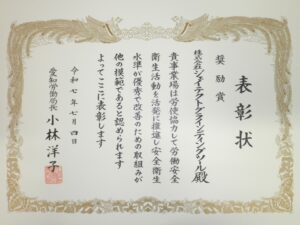 表彰状
奨励賞
株式会社ジェイテクトグラインディングツール殿
貴事業場は労使協力して労働安全
衛生活動を活発に推進し安全衛生
水準が優秀で改善のための取組みが
他の模範であると認められます
よってここに表彰します
令和七年七月四日
愛知労働局長 小林洋子